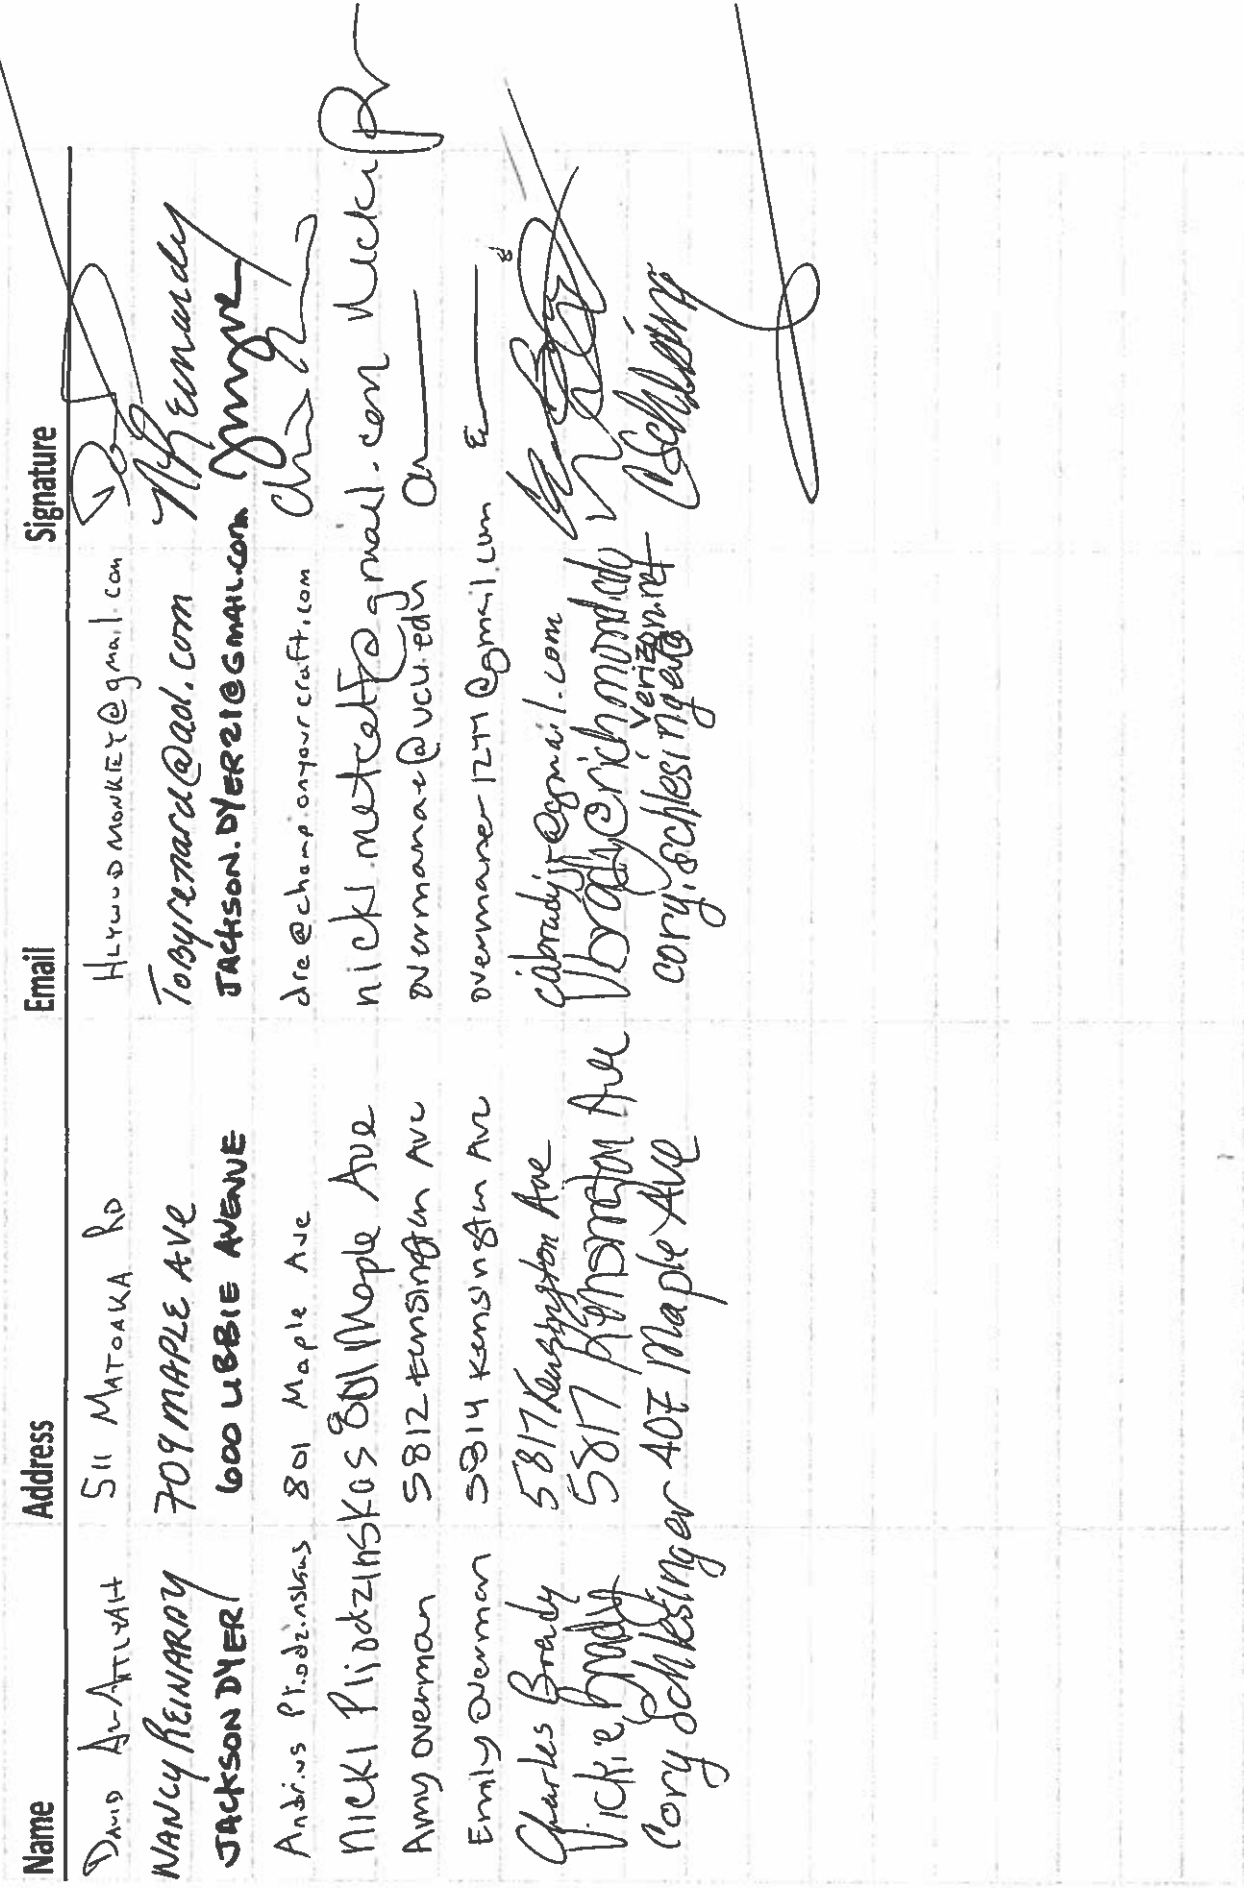 Name Address Email Signature
DAVID AL-ATTIYAH 511 MATOAKA RD HLYWUDMONKEY@gmail.com
NANCY REINARDY 709 MAPLE AVE Tobyrenard@aol.com NReinardy
JACKSON DYER 600 LIBBIE AVENUE JACKSON.DYER21@GMAIL.COM
Andrius Pliodzinskas 801 Maple Ave dre@championyourcraft.com
NICKI Pliodzinskas 801 Maple Ave nicki.metcalf@gmail.com Nicki P
Amy Overman 5812 Kensington Ave overmanae@vcu.edu
Emily Overman 5814 Kensington Ave overmaner1274@gmail.com
Charles Brady 5817 Kensington Ave cabradyjr@gmail.com
Vickie Brady 5817 Kensington Ave Vbrady@richmond.edu
Cory Schlesinger 407 Maple Ave cory.schlesinger@verizon.net CSchlesing